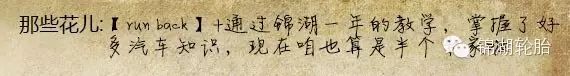 那些花儿:【run back】+通过锦湖一年的教学，掌握了好
多汽车知识，现在咱也算是半个
锦湖轮胎